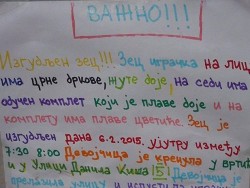 ВАЖНО!!!
Изгубљен зец!!! Зец играчка на лицу
има црне бркове, жуте доје, на себи има
обучен комплет који је плаве доје и на
комплету има плаве цветиће. Зец је
изгубљен дана 6.2.2015. ујутру између
7:30 8:00 Девојчица је кренула у вртић
и у Улици Данила Киша 5 Девојчица је
прелазила улицу и испустила